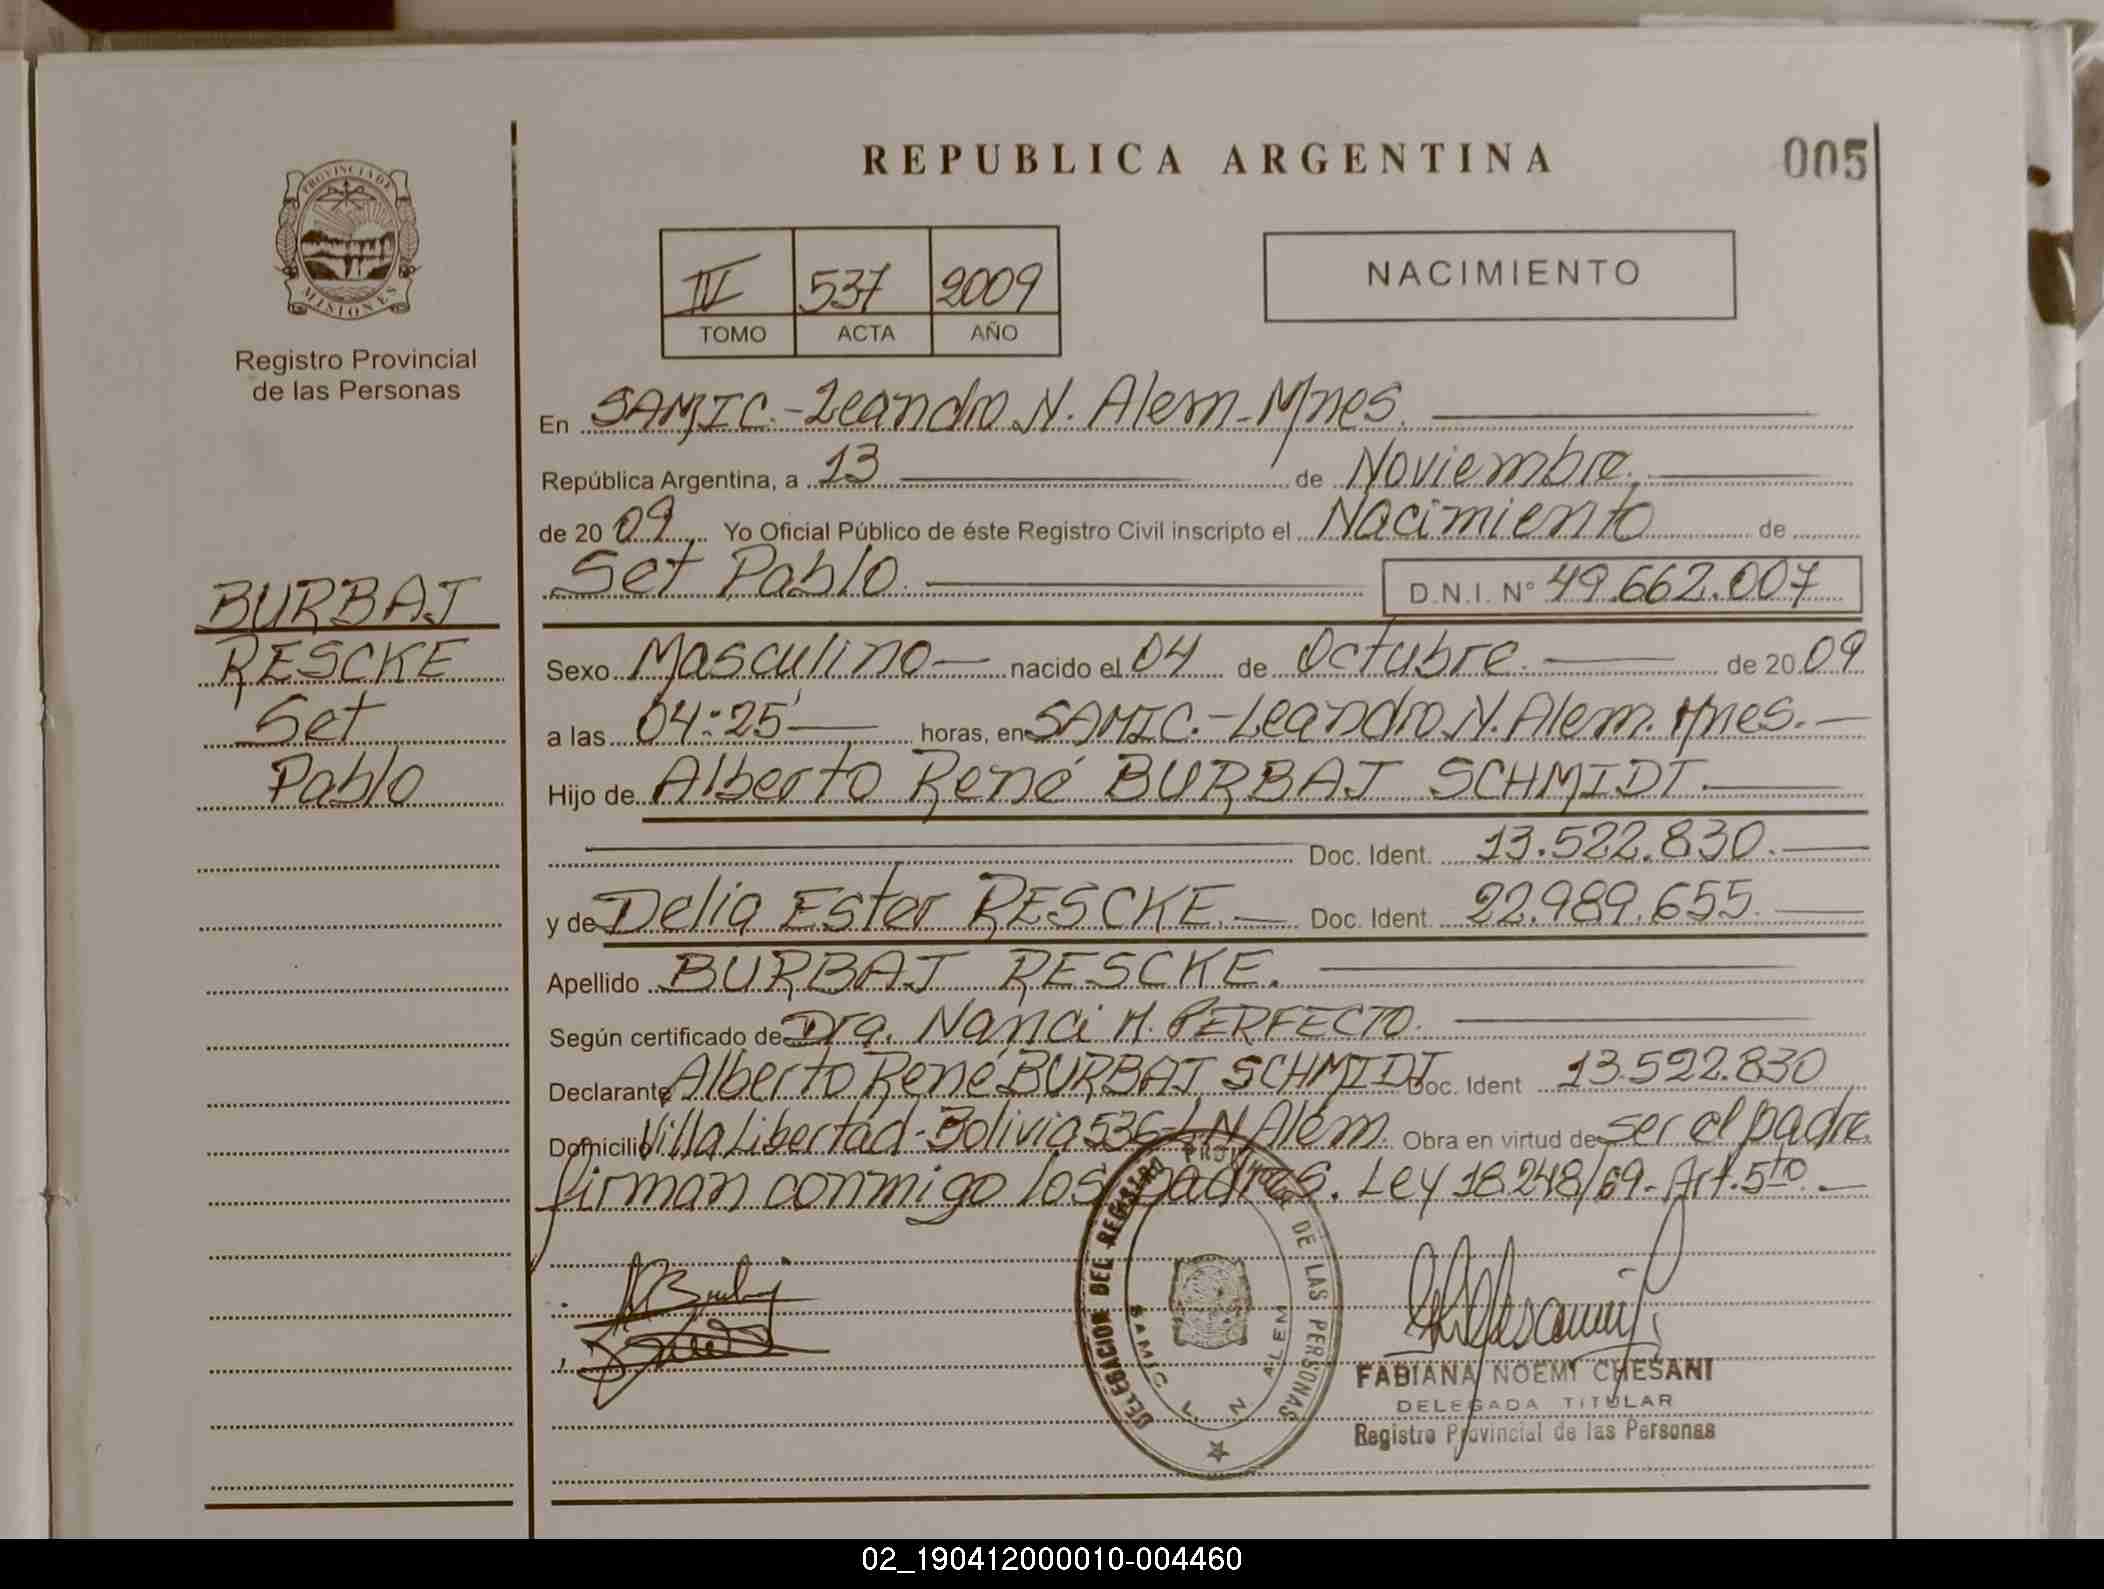 REPUBLICA ARGENTINA
005
PROVINCIA DE
MISIONES
Registro Provincial
de las Personas
IV 537 2009
TOMO ACTA AÑO
NACIMIENTO
En SAMIC.-Leandro N. Alem-Mnes.
República Argentina, a 13 de Noviembre.
de 20 09 Yo Oficial Público de éste Registro Civil inscripto el Nacimiento de
Set Pablo. D.N.I. N° 49.662.007
BURBAJ
RESCKE
Set
Pablo
Sexo Masculino nacido el 04 de Octubre. de 20 09
a las 04:25' horas, en SAMIC.-Leandro N. Alem. Mnes.
Hijo de Alberto René BURBAJ SCHMIDT.
Doc. Ident. 13.522.830.
y de Delia Ester RESCKE. Doc. Ident. 22.989.655.
Apellido BURBAJ RESCKE.
Según certificado de Dra. Nanci M. PERFECTO.
Declarante Alberto René BURBAJ SCHMIDT Doc. Ident 13.522.830
Domicilio Villa Libertad-Bolivia 536-L N Alem. Obra en virtud de ser el padre.
firman conmigo los padres. Ley 18.248/69-Art. 5to.
DELEGACION DEL REGISTRO PROVINCIAL DE LAS PERSONAS
SAMIC L N ALEM
FABIANA NOEMI CHESANI
DELEGADA TITULAR
Registro Provincial de las Personas
02_190412000010-004460